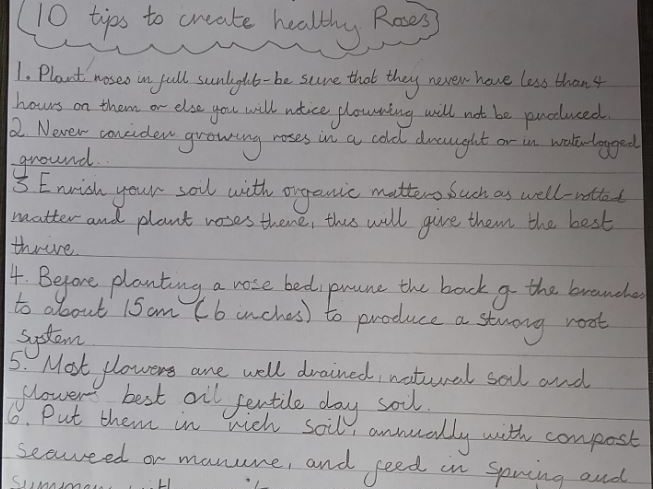 10 tips to create healthy Roses
1. Plant roses in full sunlight - be sure that they never have less than 4
hours on them or else you will notice flowering will not be produced.
2. Never consider growing roses in a cold draught or in waterlogged
ground.
3 Enrish your soil with organic matters such as well-rotted
matter and plant roses there, this will give them the best
thrive.
4. Before planting a rose bed, prune the back of the branches
to about 15cm (6 inches) to produce a strong root
system
5. Most flowers are well drained, natural soil and
flowers best oil fertile clay soil.
6. Put them in rich soil, annually with compost
seaweed or manure, and feed in spring and
summer with